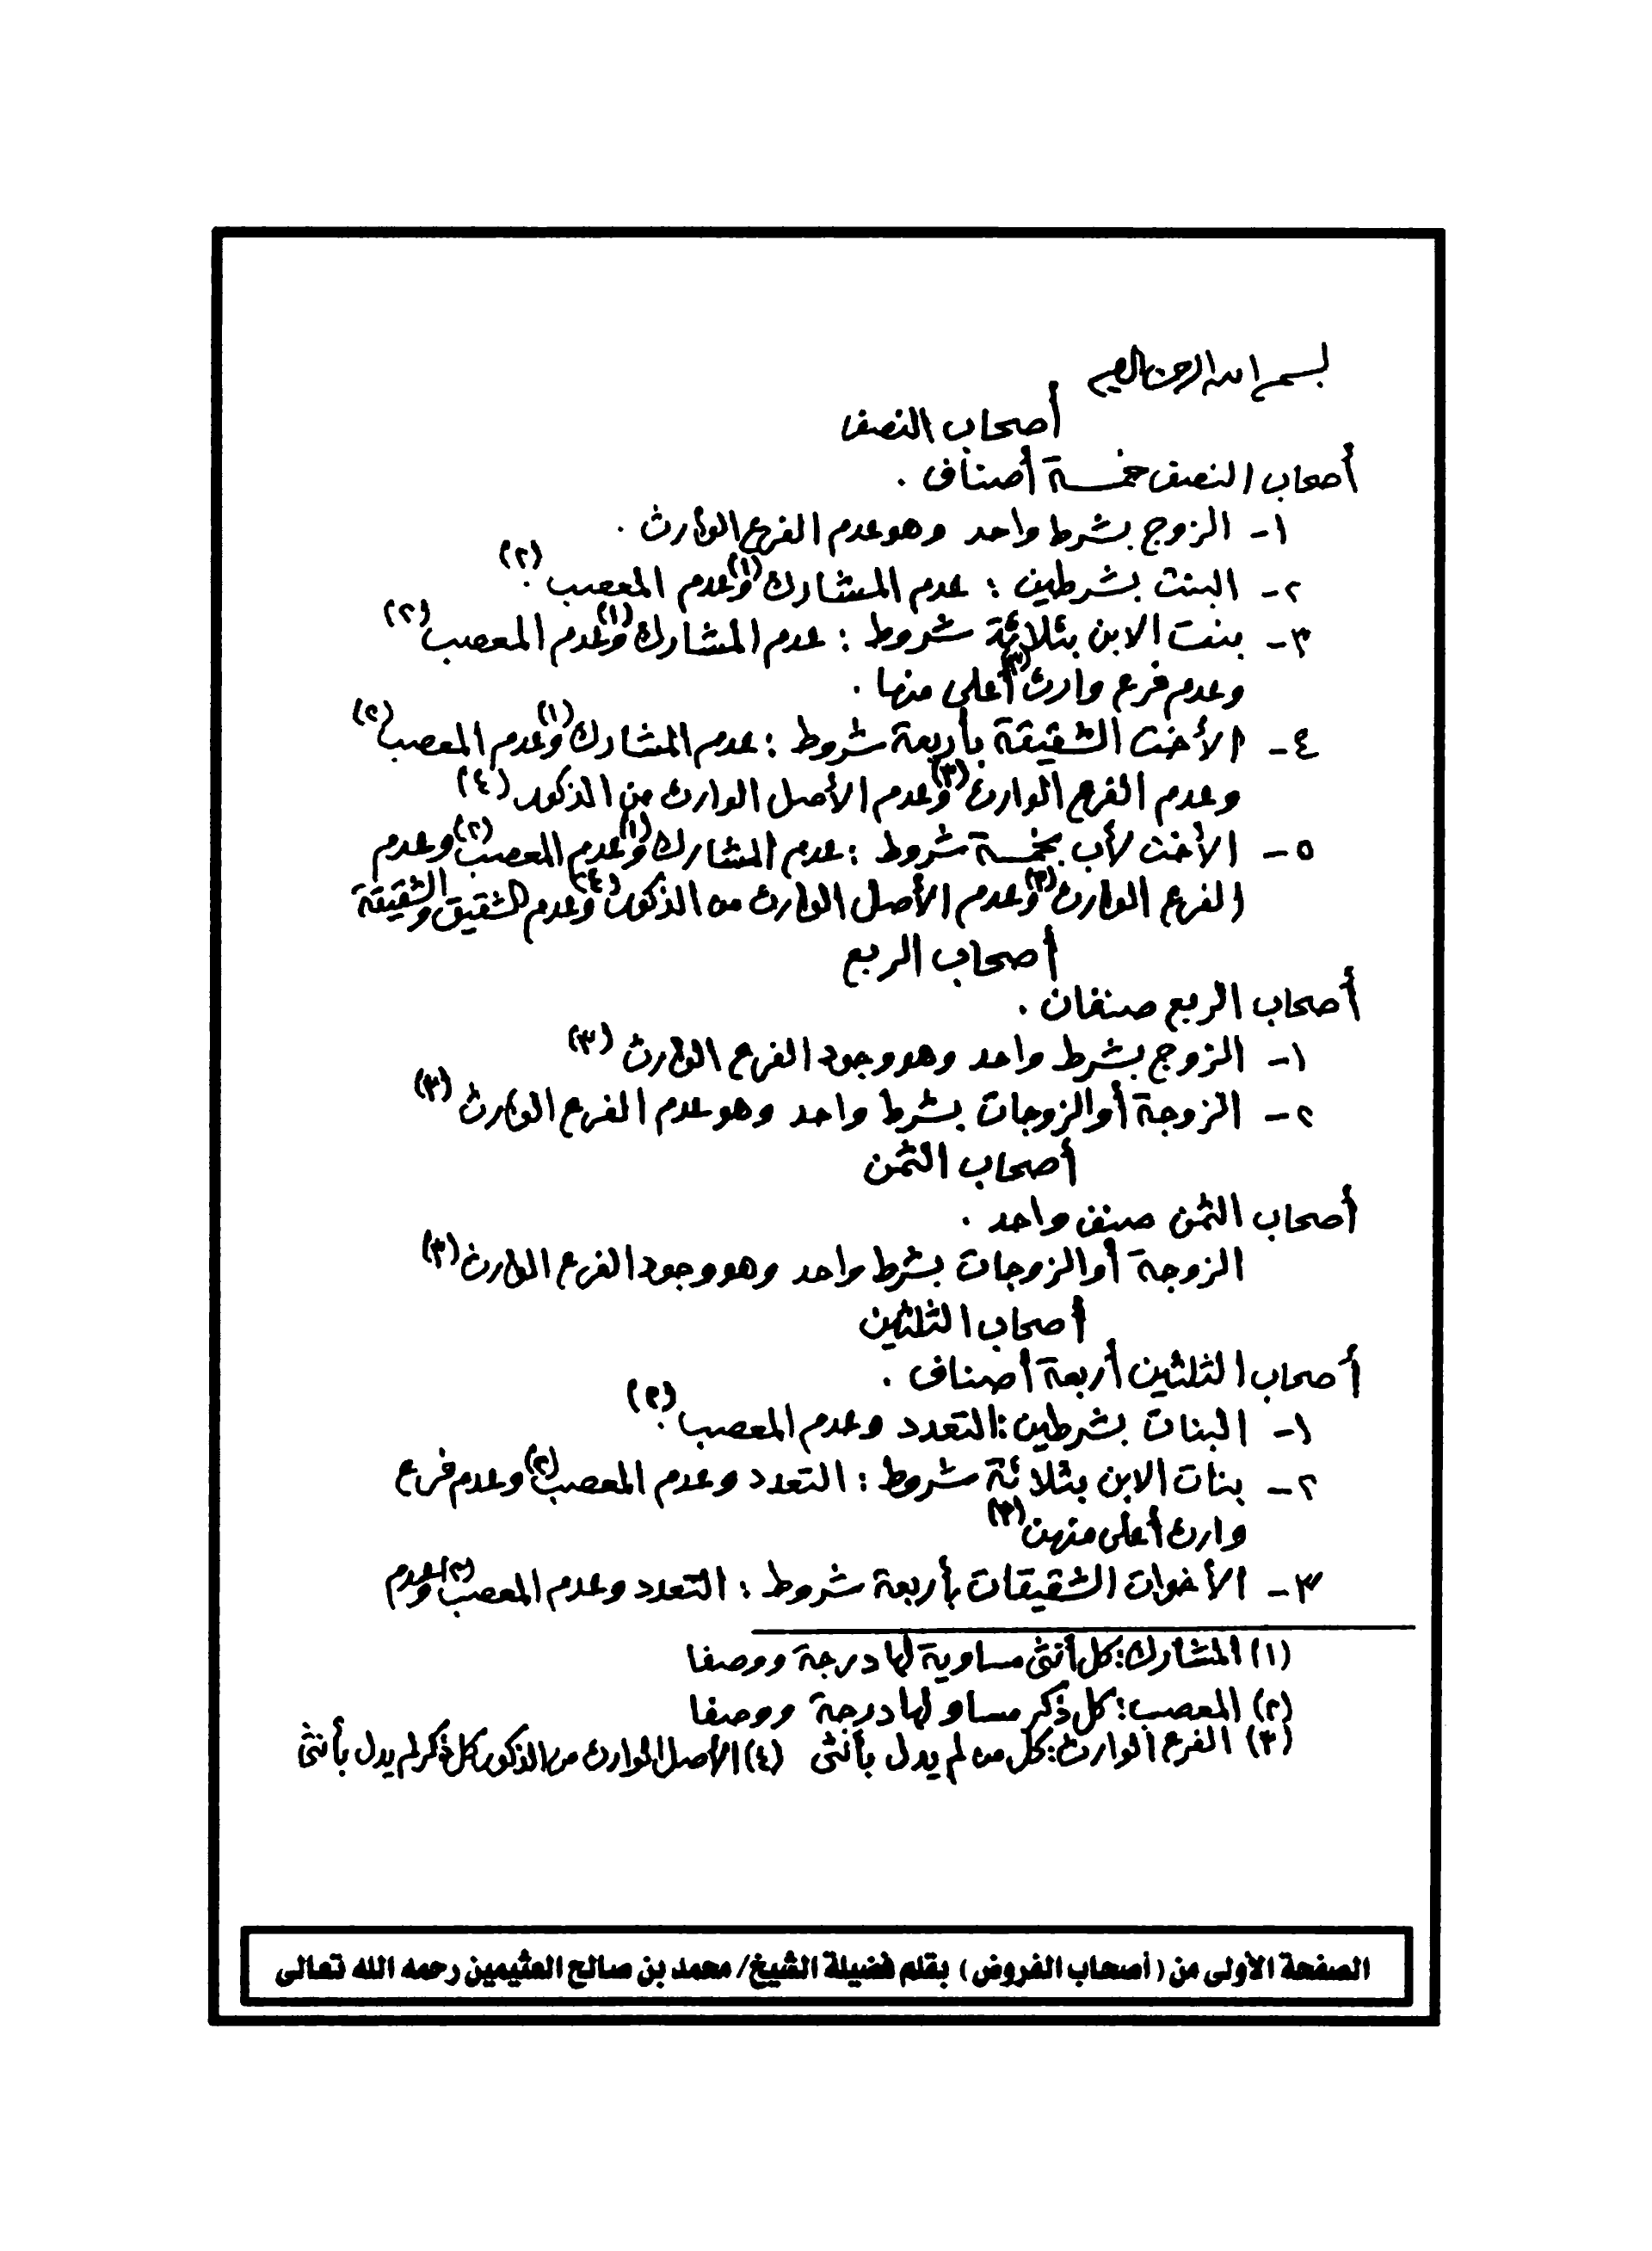 بسم الله الرحمن الرحيم
أصحاب النصف
أصحاب النصف خمسة أصناف .
١- الزوج بشرط واحد وهو عدم الفرع الوارث .
٢- البنت بشرطين : عدم المشارك (١) وعدم المعصب (٢) .
٣- بنت الابن بثلاثة شروط : عدم المشارك (١) وعدم المعصب (٢)
وعدم فرع وارث (٣) أعلى منها .
٤- الأخت الشقيقة بأربعة شروط : عدم المشارك (١) وعدم المعصب (٢)
وعدم الفرع الوارث (٣) وعدم الأصل الوارث من الذكور (٤)
٥- الأخت لأب بخمسة شروط : عدم المشارك (١) وعدم المعصب (٢) وعدم
الفرع الوارث (٣) وعدم الأصل الوارث من الذكور (٤) وعدم الشقيق والشقيقة
أصحاب الربع
أصحاب الربع صنفان .
١- الزوج بشرط واحد وهو وجود الفرع الوارث (٣)
٢- الزوجة أو الزوجات بشرط واحد وهو عدم الفرع الوارث (٣)
أصحاب الثمن
أصحاب الثمن صنف واحد .
الزوجة أو الزوجات بشرط واحد وهو وجود الفرع الوارث (٣)
أصحاب الثلثين
أصحاب الثلثين أربعة أصناف .
١- البنات بشرطين : التعدد وعدم المعصب (٢) .
٢- بنات الابن بثلاثة شروط : التعدد وعدم المعصب (٢) وعدم فرع
وارث أعلى منهن (٣)
٣- الأخوات الشقيقات بأربعة شروط : التعدد وعدم المعصب (٢) وعدم
(١) المشارك : كل أنثى مساوية لها درجة ووصفا
(٢) المعصب : كل ذكر مساو لها درجة ووصفا
(٣) الفرع الوارث : كل من لم يدل بأنثى (٤) الأصل الوارث من الذكور كل ذكر لم يدل بأنثى
الصفحة الأولى من (أصحاب الفروض) بقلم فضيلة الشيخ/ محمد بن صالح العثيمين رحمه الله تعالى